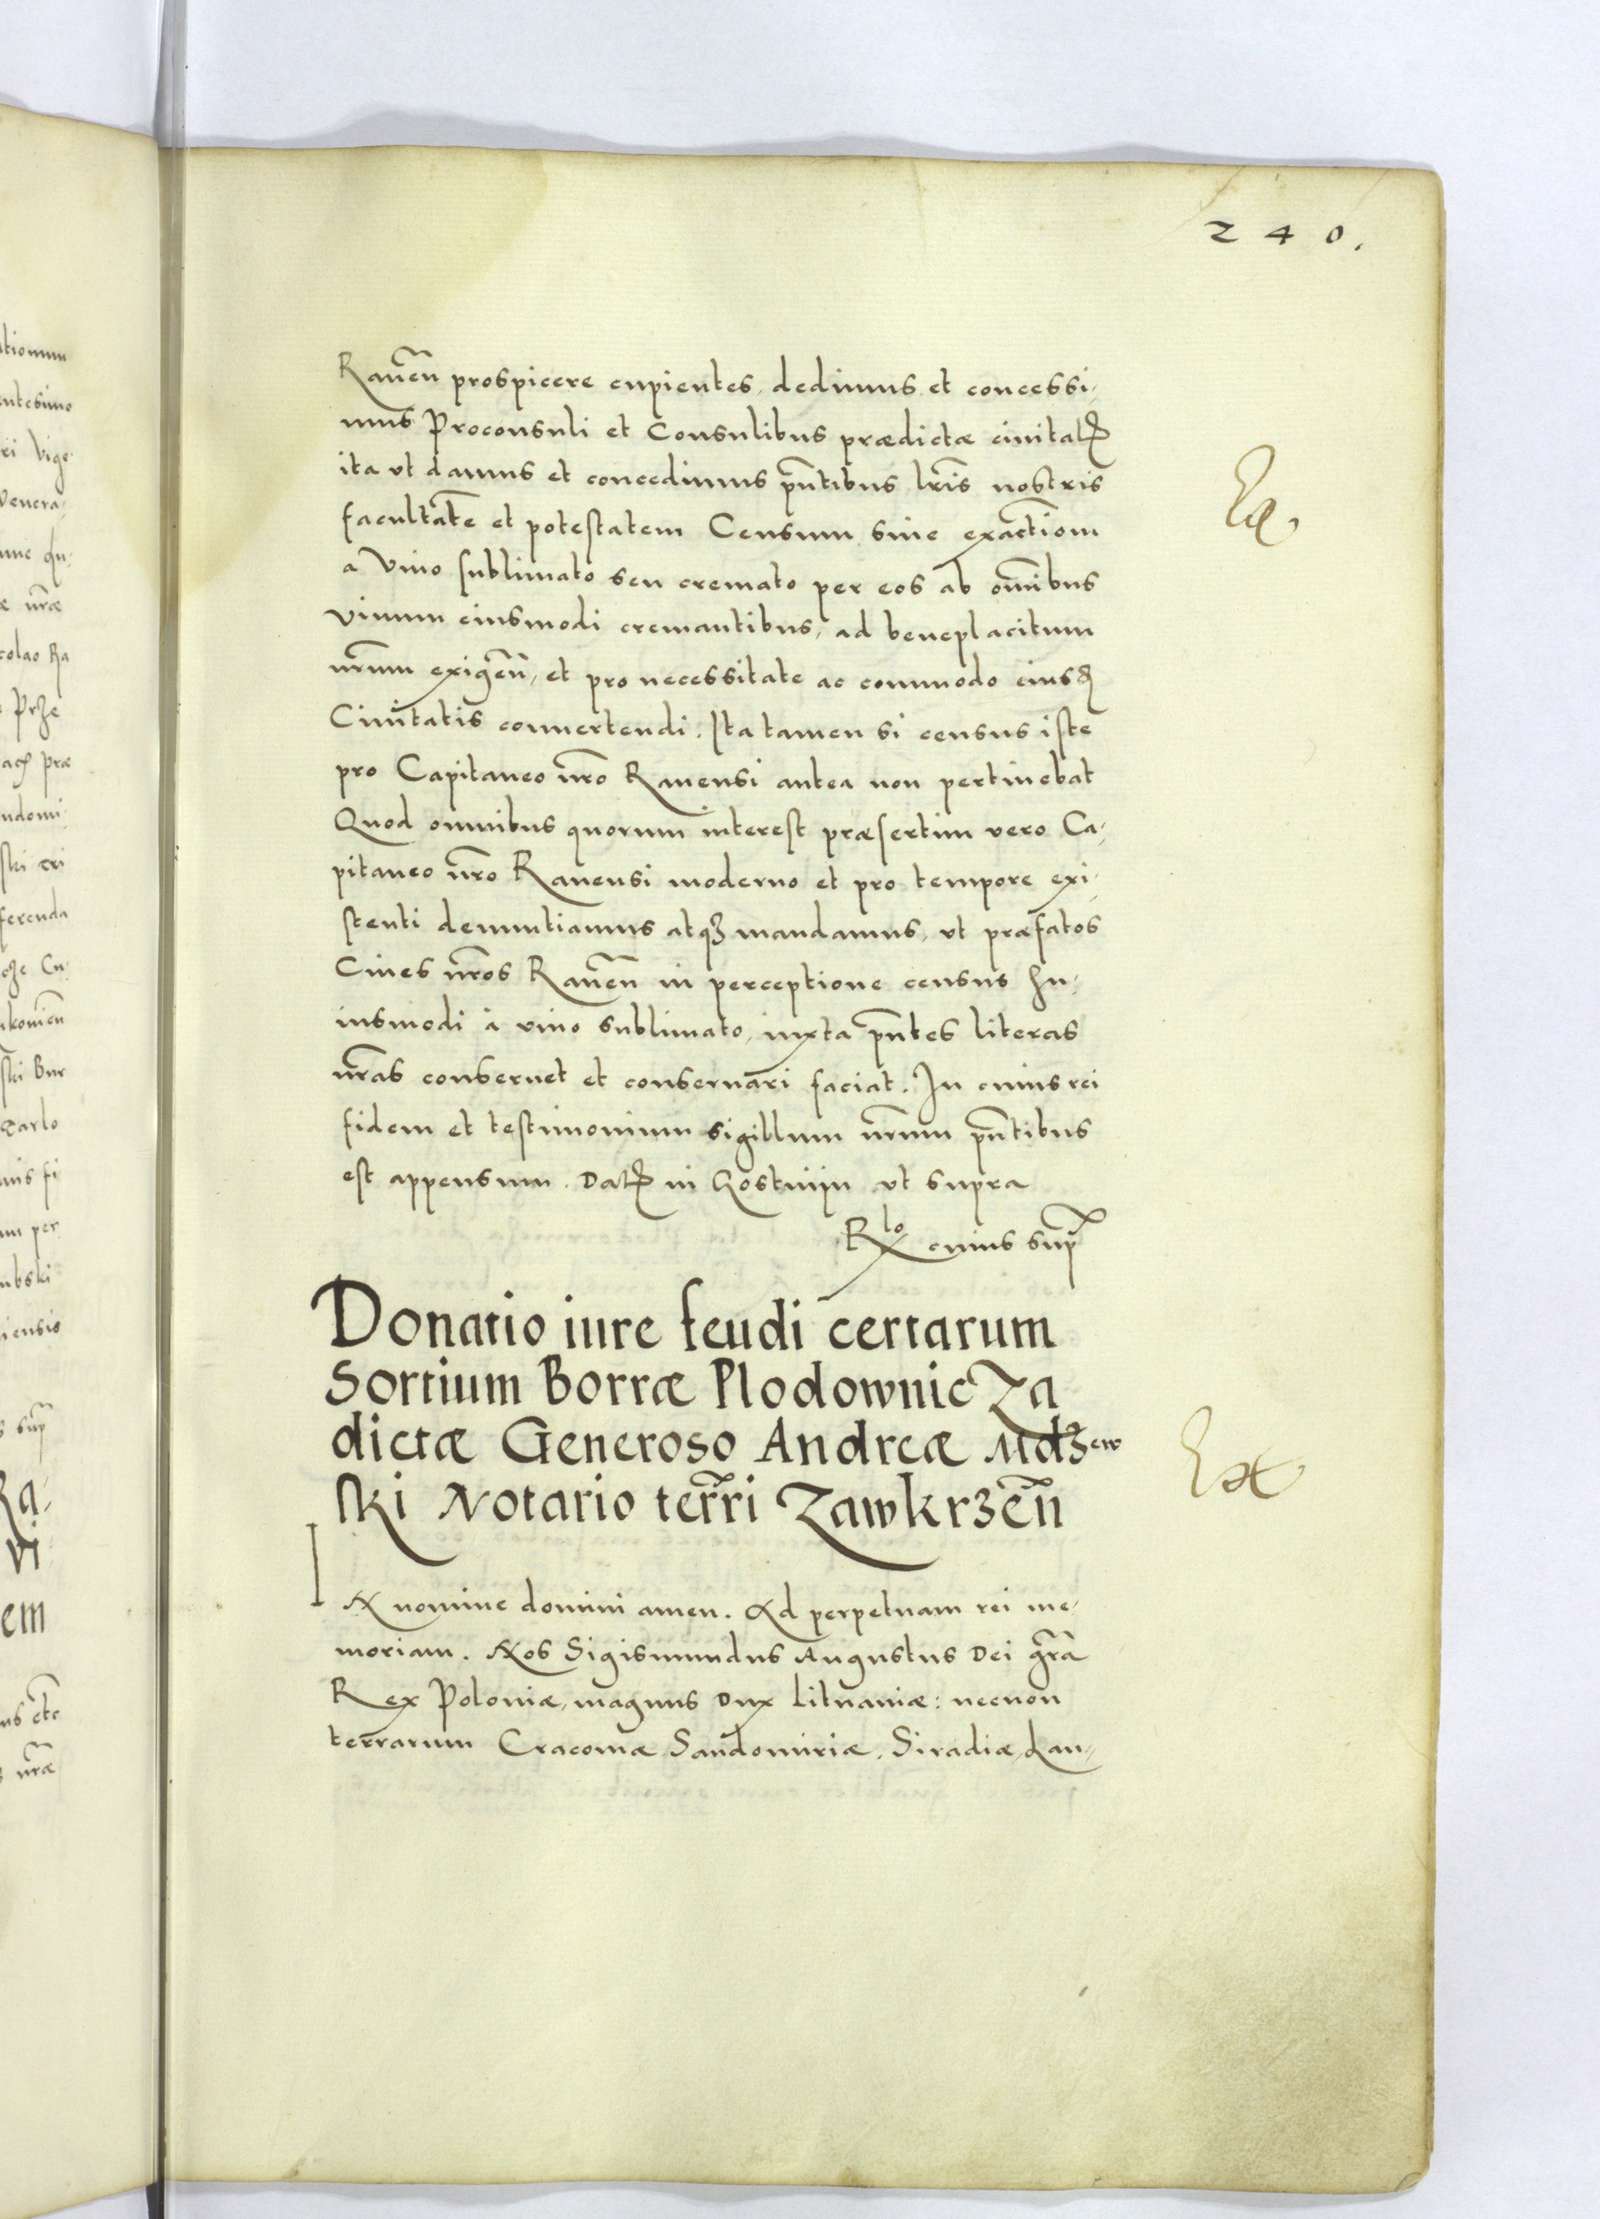 240.
Raueñ prospicere cupientes, dedimus et concessi-
mus Proconsuli et Consulibus prædictæ ciuitatꝭ
ita vt damus et concedimus pñtibus lris nostris
facultatē et potestatem Censum siue exactiom
a Vino sublimato seu cremato per eos ab oībus
vinum eiusmodi cremantibus, ad beneplacitum
nrum exigeñ, et pro necessitate ac commodo eiusꝫ
Ciuitatis conuertendi. Ita tamen si census iste
pro Capitaneo nro Rauensi antea non pertinebat
Quod omnibus quorum interest præsertim vero Ca-
pitaneo nro Rauensi moderno et pro tempore exi-
stenti denuntiamus atqꝫ mandamus, vt præfatos
Ciues nros Raueñ in perceptione census hu-
iusmodi à vino sublimato, iuxta pñtes literas
nras conseruet et conseruari faciat. In cuius rei
fidem et testimonium sigillum nrum pñtibus
est appensum. Datꝭ in Gostinijn vt supra
Rlo cuius sup
Ex
Donatio iure feudi certarum
Sortium Borræ Plodownicza
dictæ Generoso Andreæ Mdzew
ski Notario terri Zawkrzeñ
Ex
IN nomine domini amen. Ad perpetuam rei me-
moriam. Nos Sigismundus Augustus Dei gra
Rex Poloniæ, magnus Dux Lituaniæ: necnon
terrarum Cracouiæ Sandomiriæ, Siradiæ, Lan-